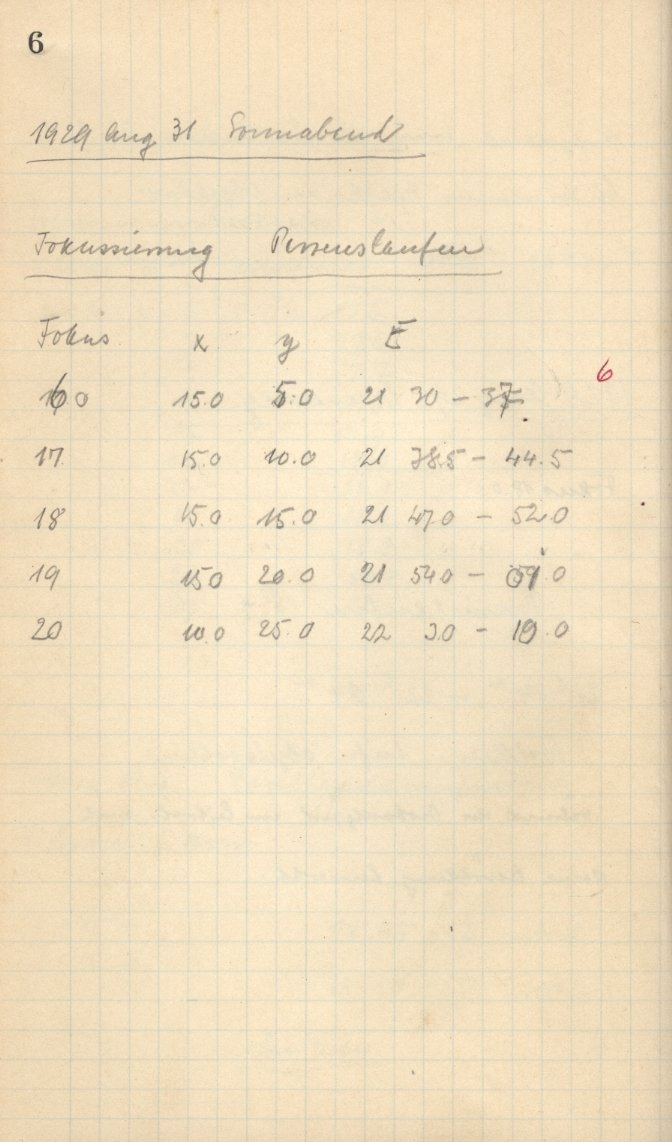 6
1929 Aug 31 Sonnabend
Fokussierung Perseushaufen
Fokus x y E
6
16.0 15.0 5.0 21 30 - 37
17 15.0 10.0 21 38.5 - 44.5
18 15.0 15.0 21 47.0 - 52.0
19 15.0 20.0 21 54.0 - 59.0
20 10.0 25.0 22 3.0 - 10.0